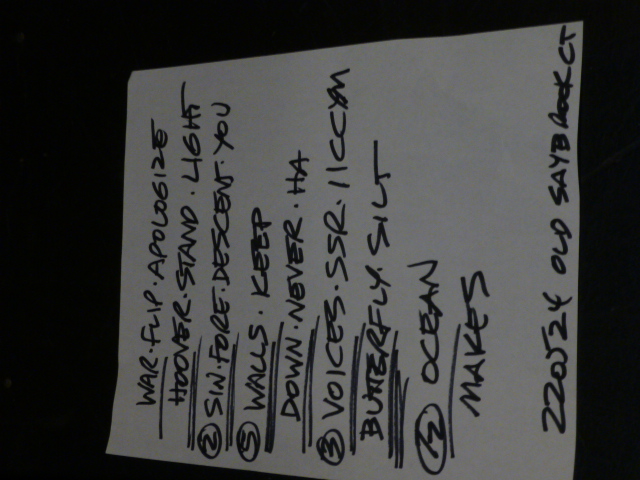 WAR.FLIP.APOLOGIZE
HOOVER.STAND.LIGHT
② SIN.FORE.DESCENT.YOU
⑤ WALLS.KEEP
DOWN.NEVER.HA
③ VOICES.SSR.11CCYM
BUTTERFLY.SILT
⑫ OCEAN
MAKES
220524 OLD SAYBROOK CT